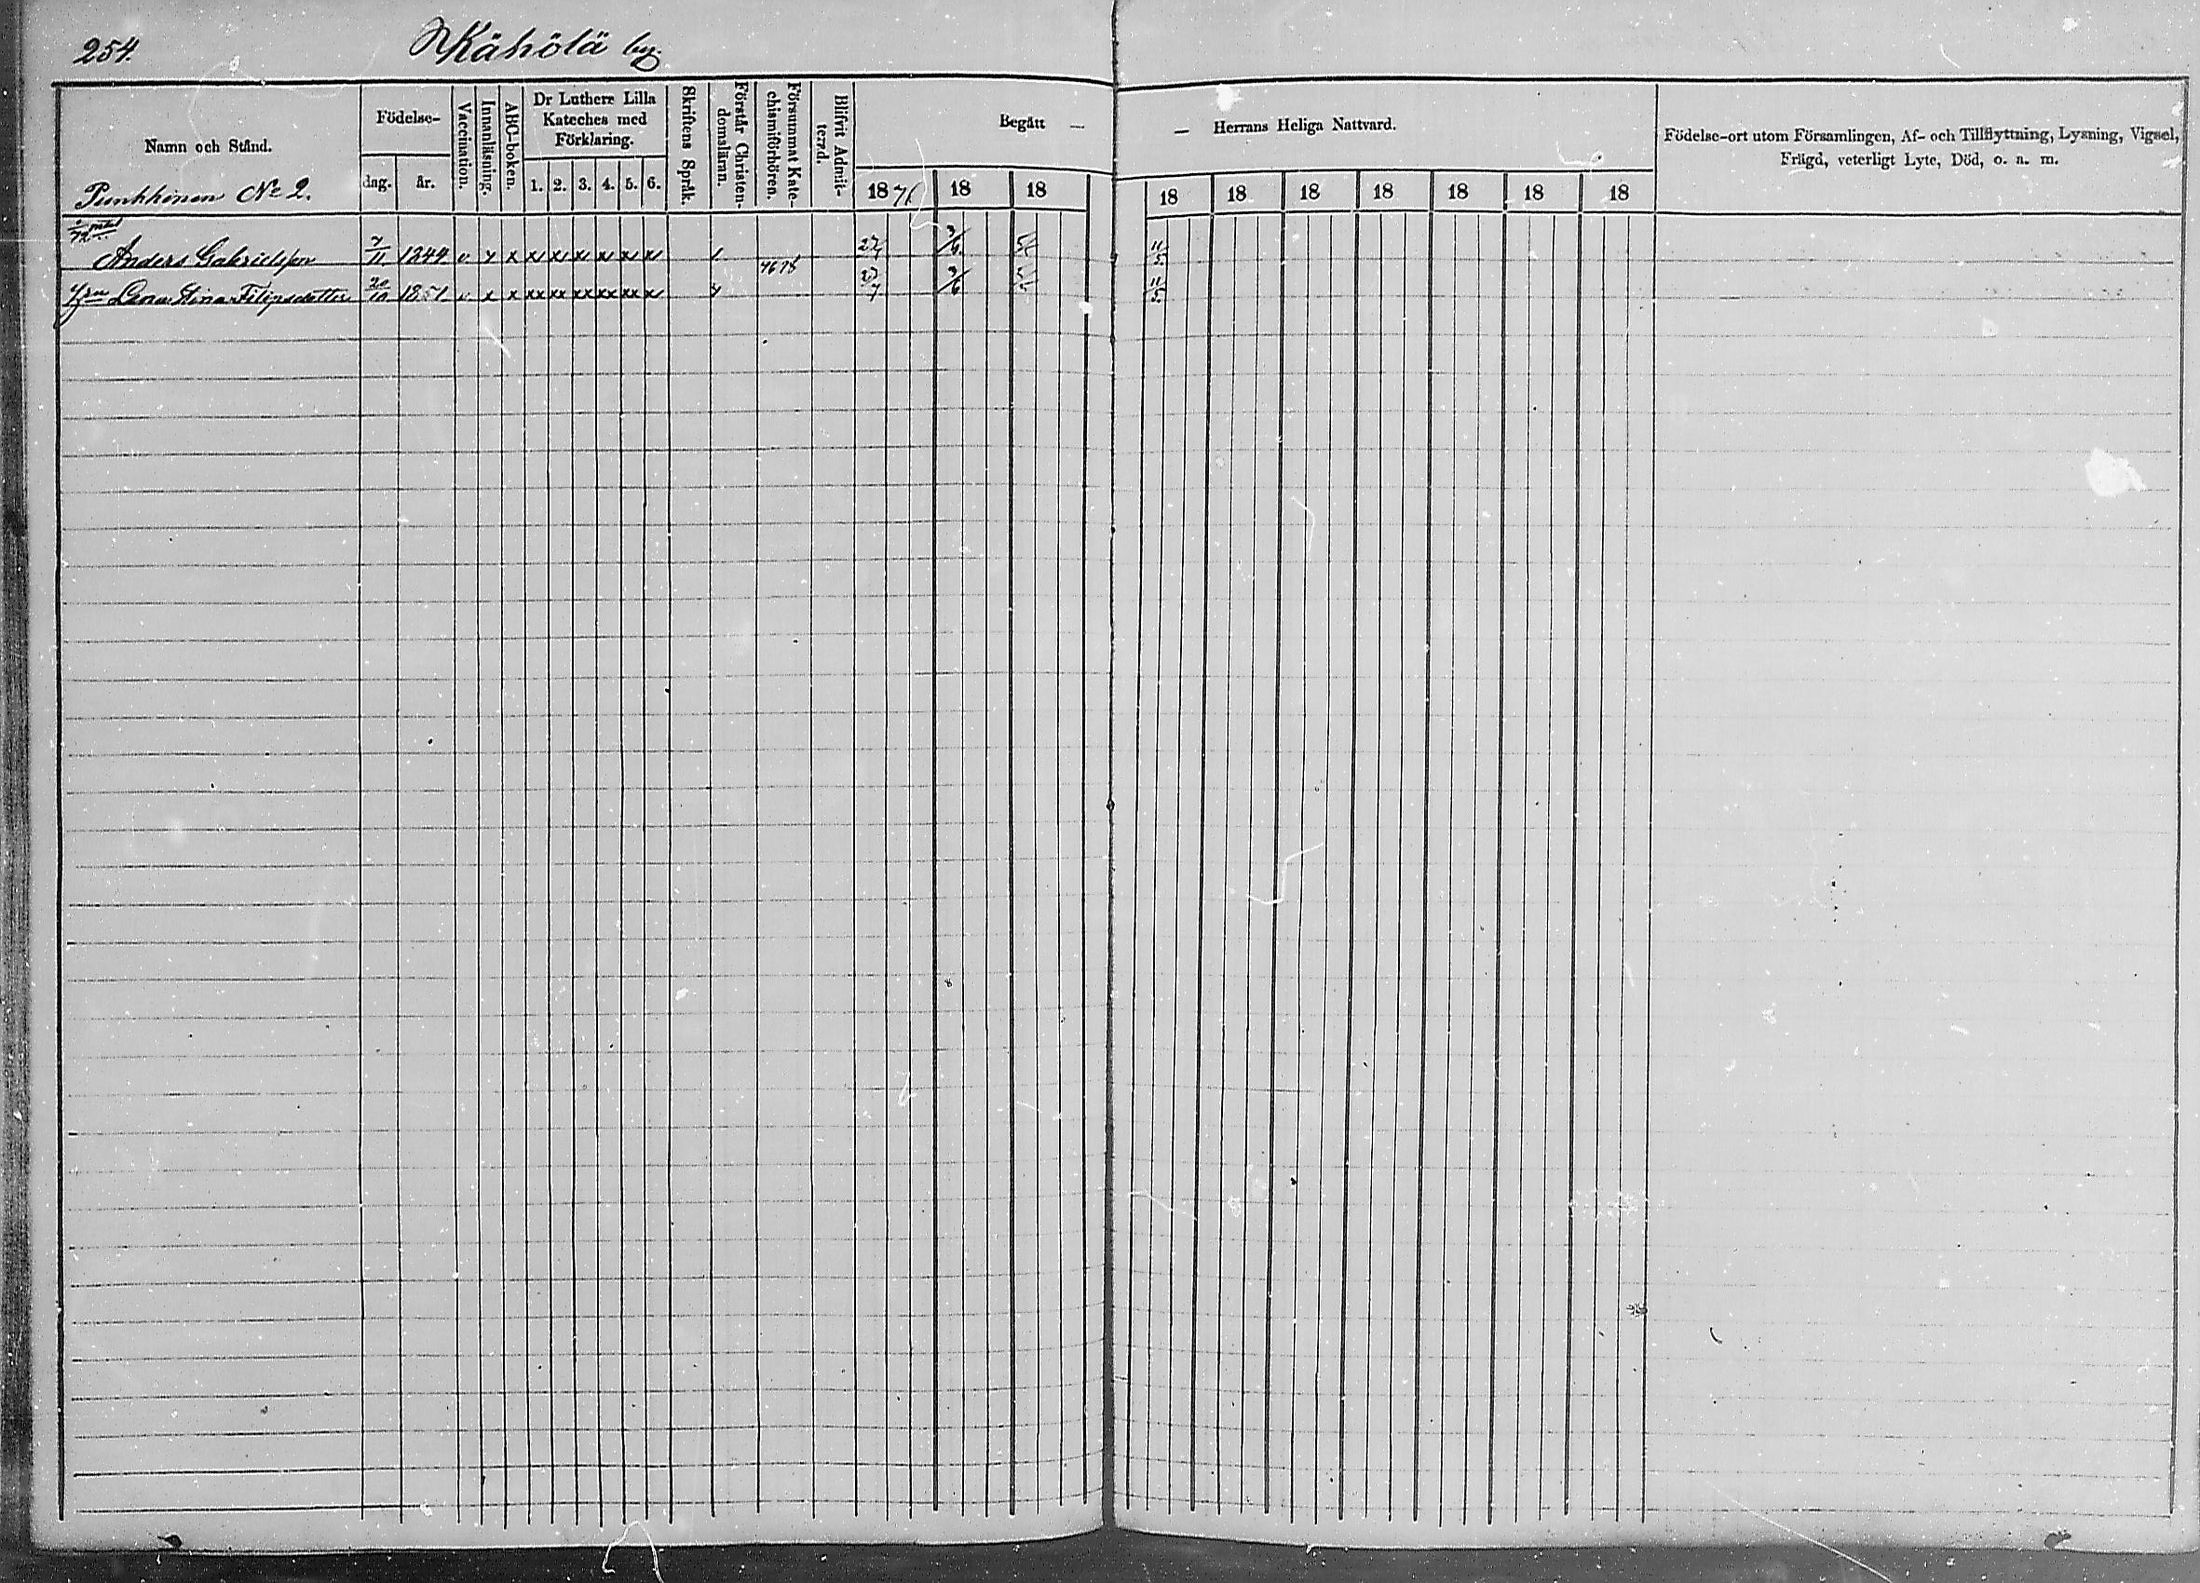 254. Kähölä by.
Namn och Stånd.
Födelse-
dag. år.
Vaccination.
Innanläsning.
ABC-boken.
Dr Luthers Lilla
Kateches med
Förklaring.
1. 2. 3. 4. 5. 6.
Skriftens Språk.
Förstår Christen-
domsläran.
Försummat Kate-
chismiförhören.
Blifvit Admit-
terad.
Begått —
— Herrans Heliga Nattvard.
18 76 18 18 18 18 18 18 18 18 18
Födelse-ort utom Församlingen, Af- och Tillflyttning, Lysning, Vigsel,
Frägd, veterligt Lyte, Död, o. a. m.
Punkkinen No 2.
Anders Gabrielsson 7/11 1844 v x x x x x x x x 27/7 9/6 11/5
Lena Stina Filipsdotter 20/10 1851 v x x xx xx xx xx xx x 7678 27/7 9/6 11/5